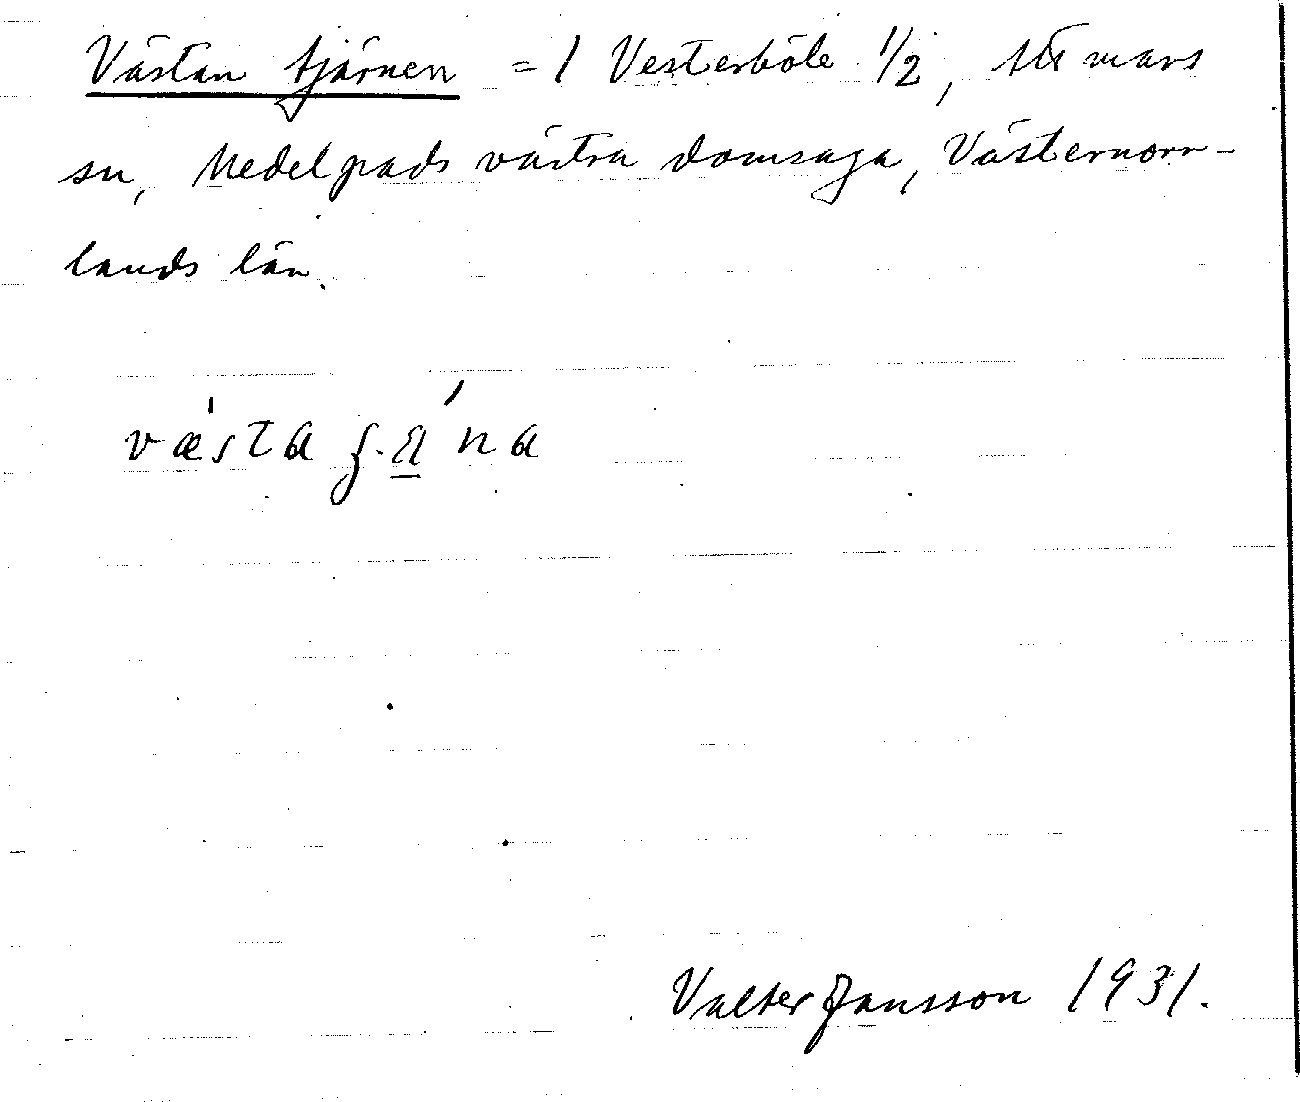 Västan tjärnen = 1 Vesterböle 1/2, Attmars
sn, Medelpads västra domsaga, Västernorr-
lands län.
Valter Jansson 1931.